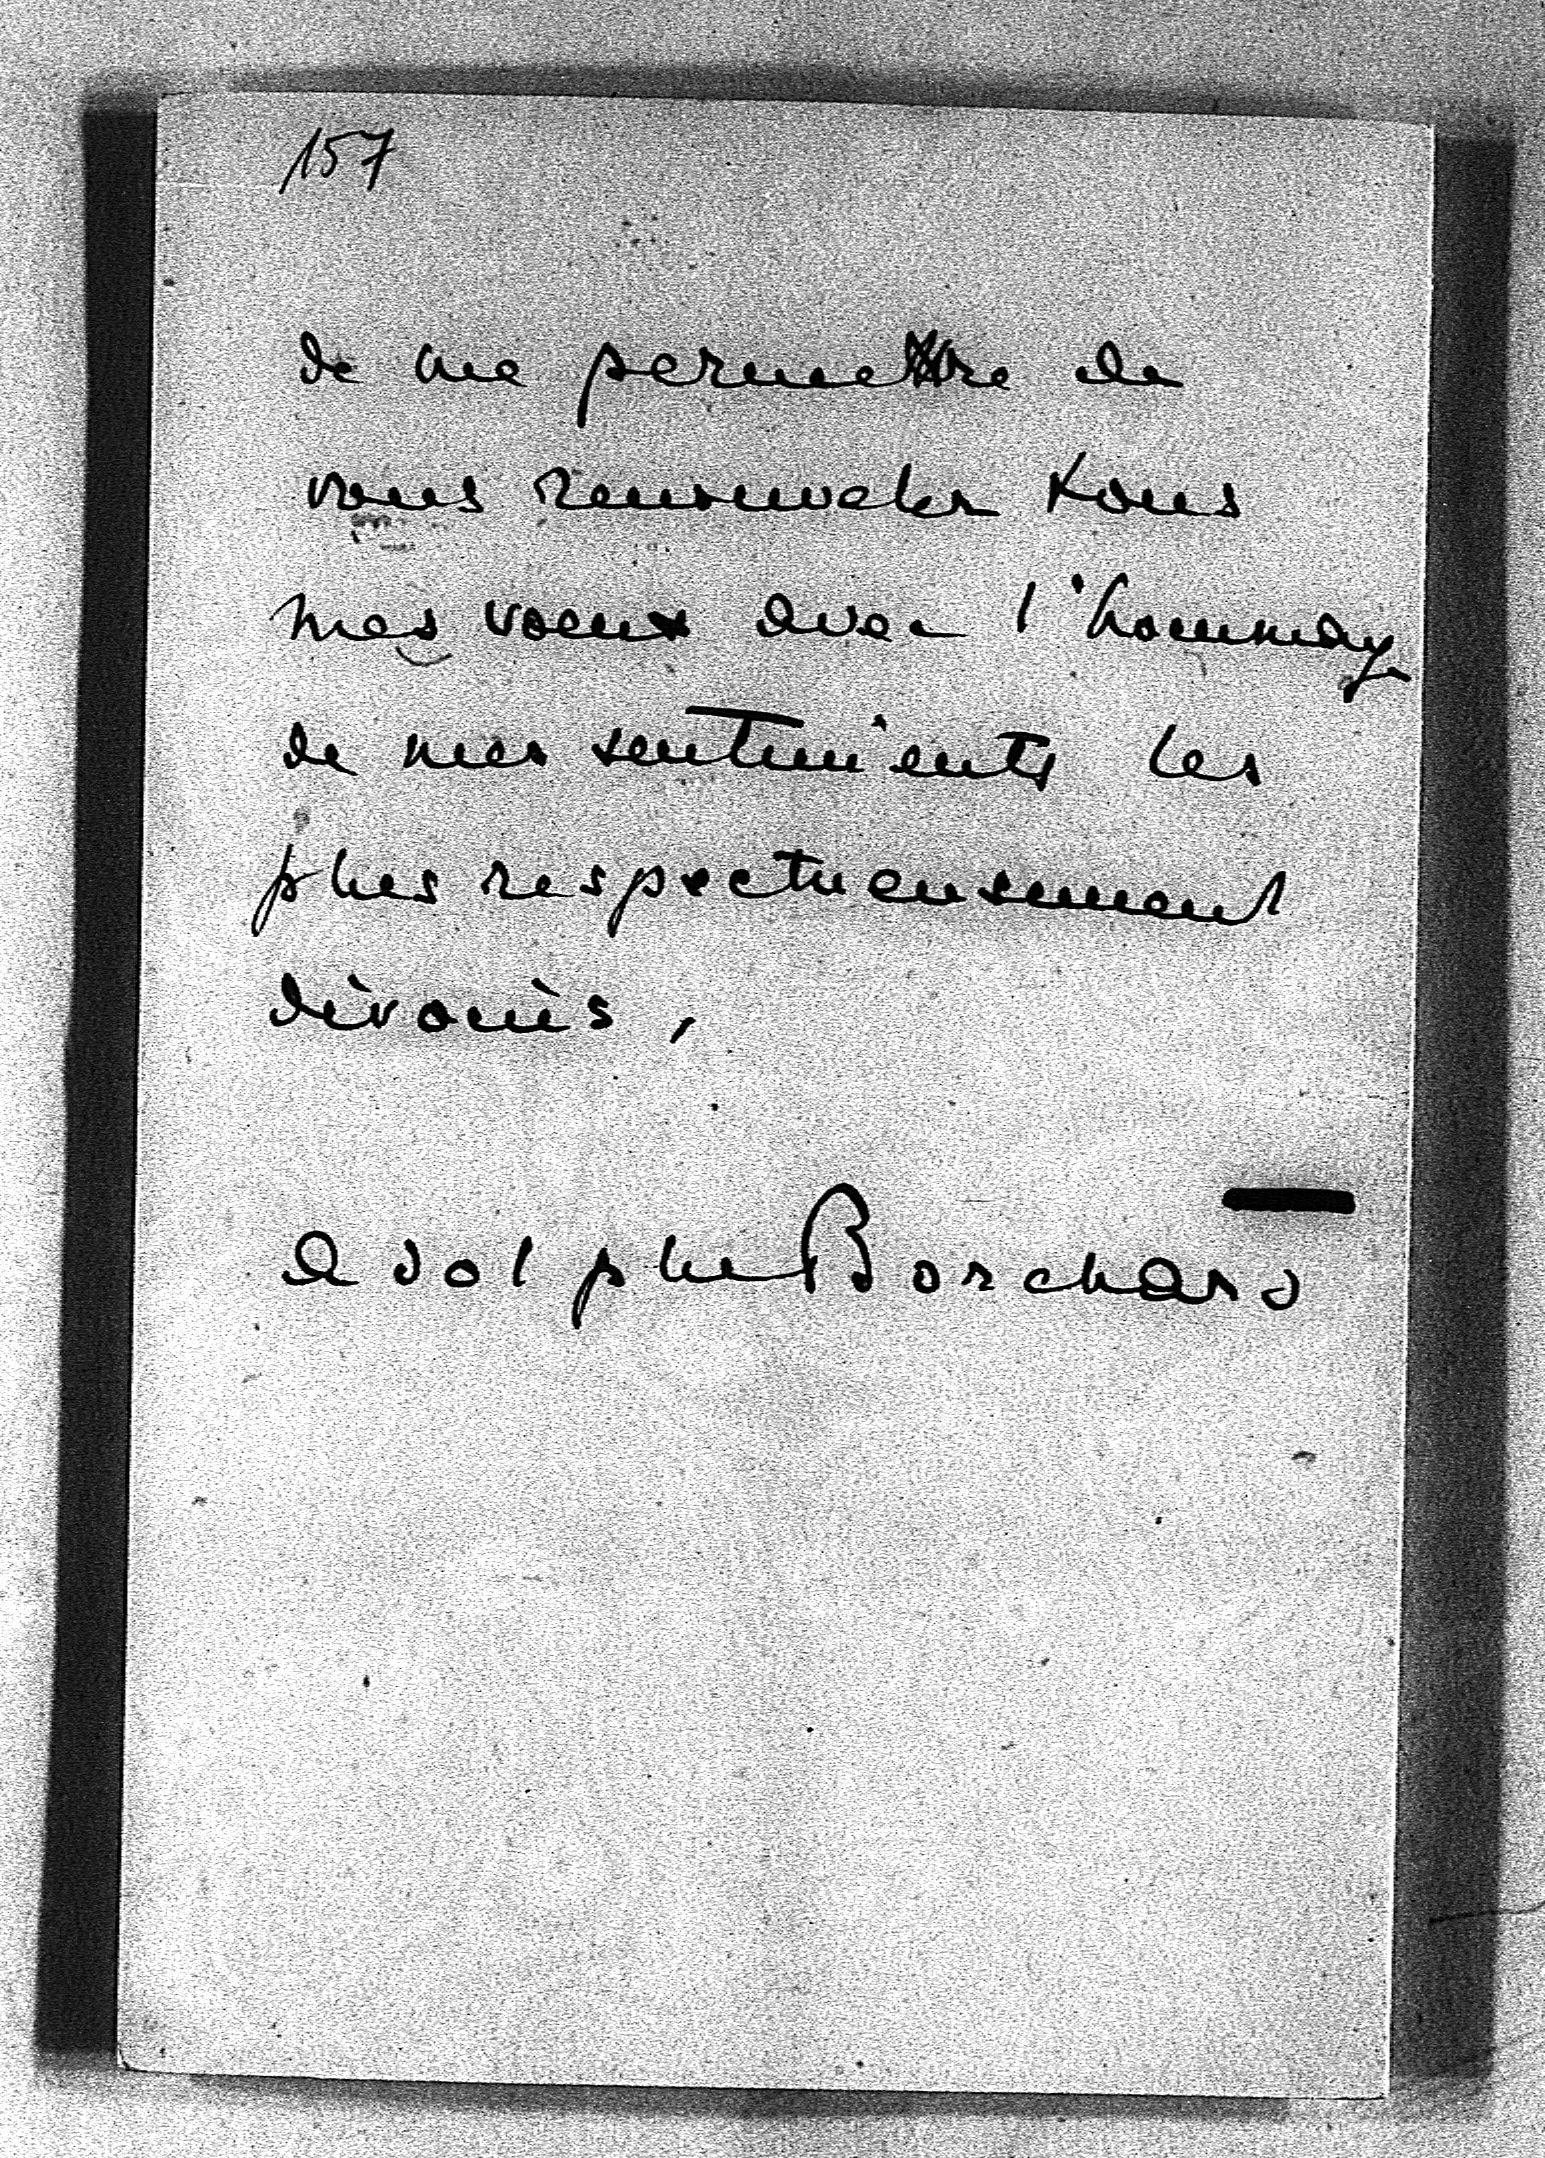 157
de me permettre de
vous renouveler tous
mes voeux avec l'hommage
de mes sentiments les
plus respectueusement
dévoués,
Adolphe Borchard